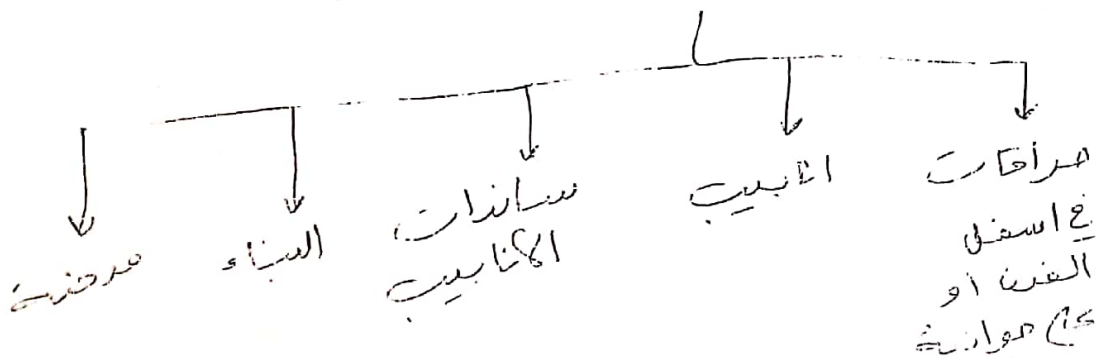 حراقات
في اسفل
الفرن او
على جوانبه
انابيب
ساندات
الانابيب
البناء
مدخنة